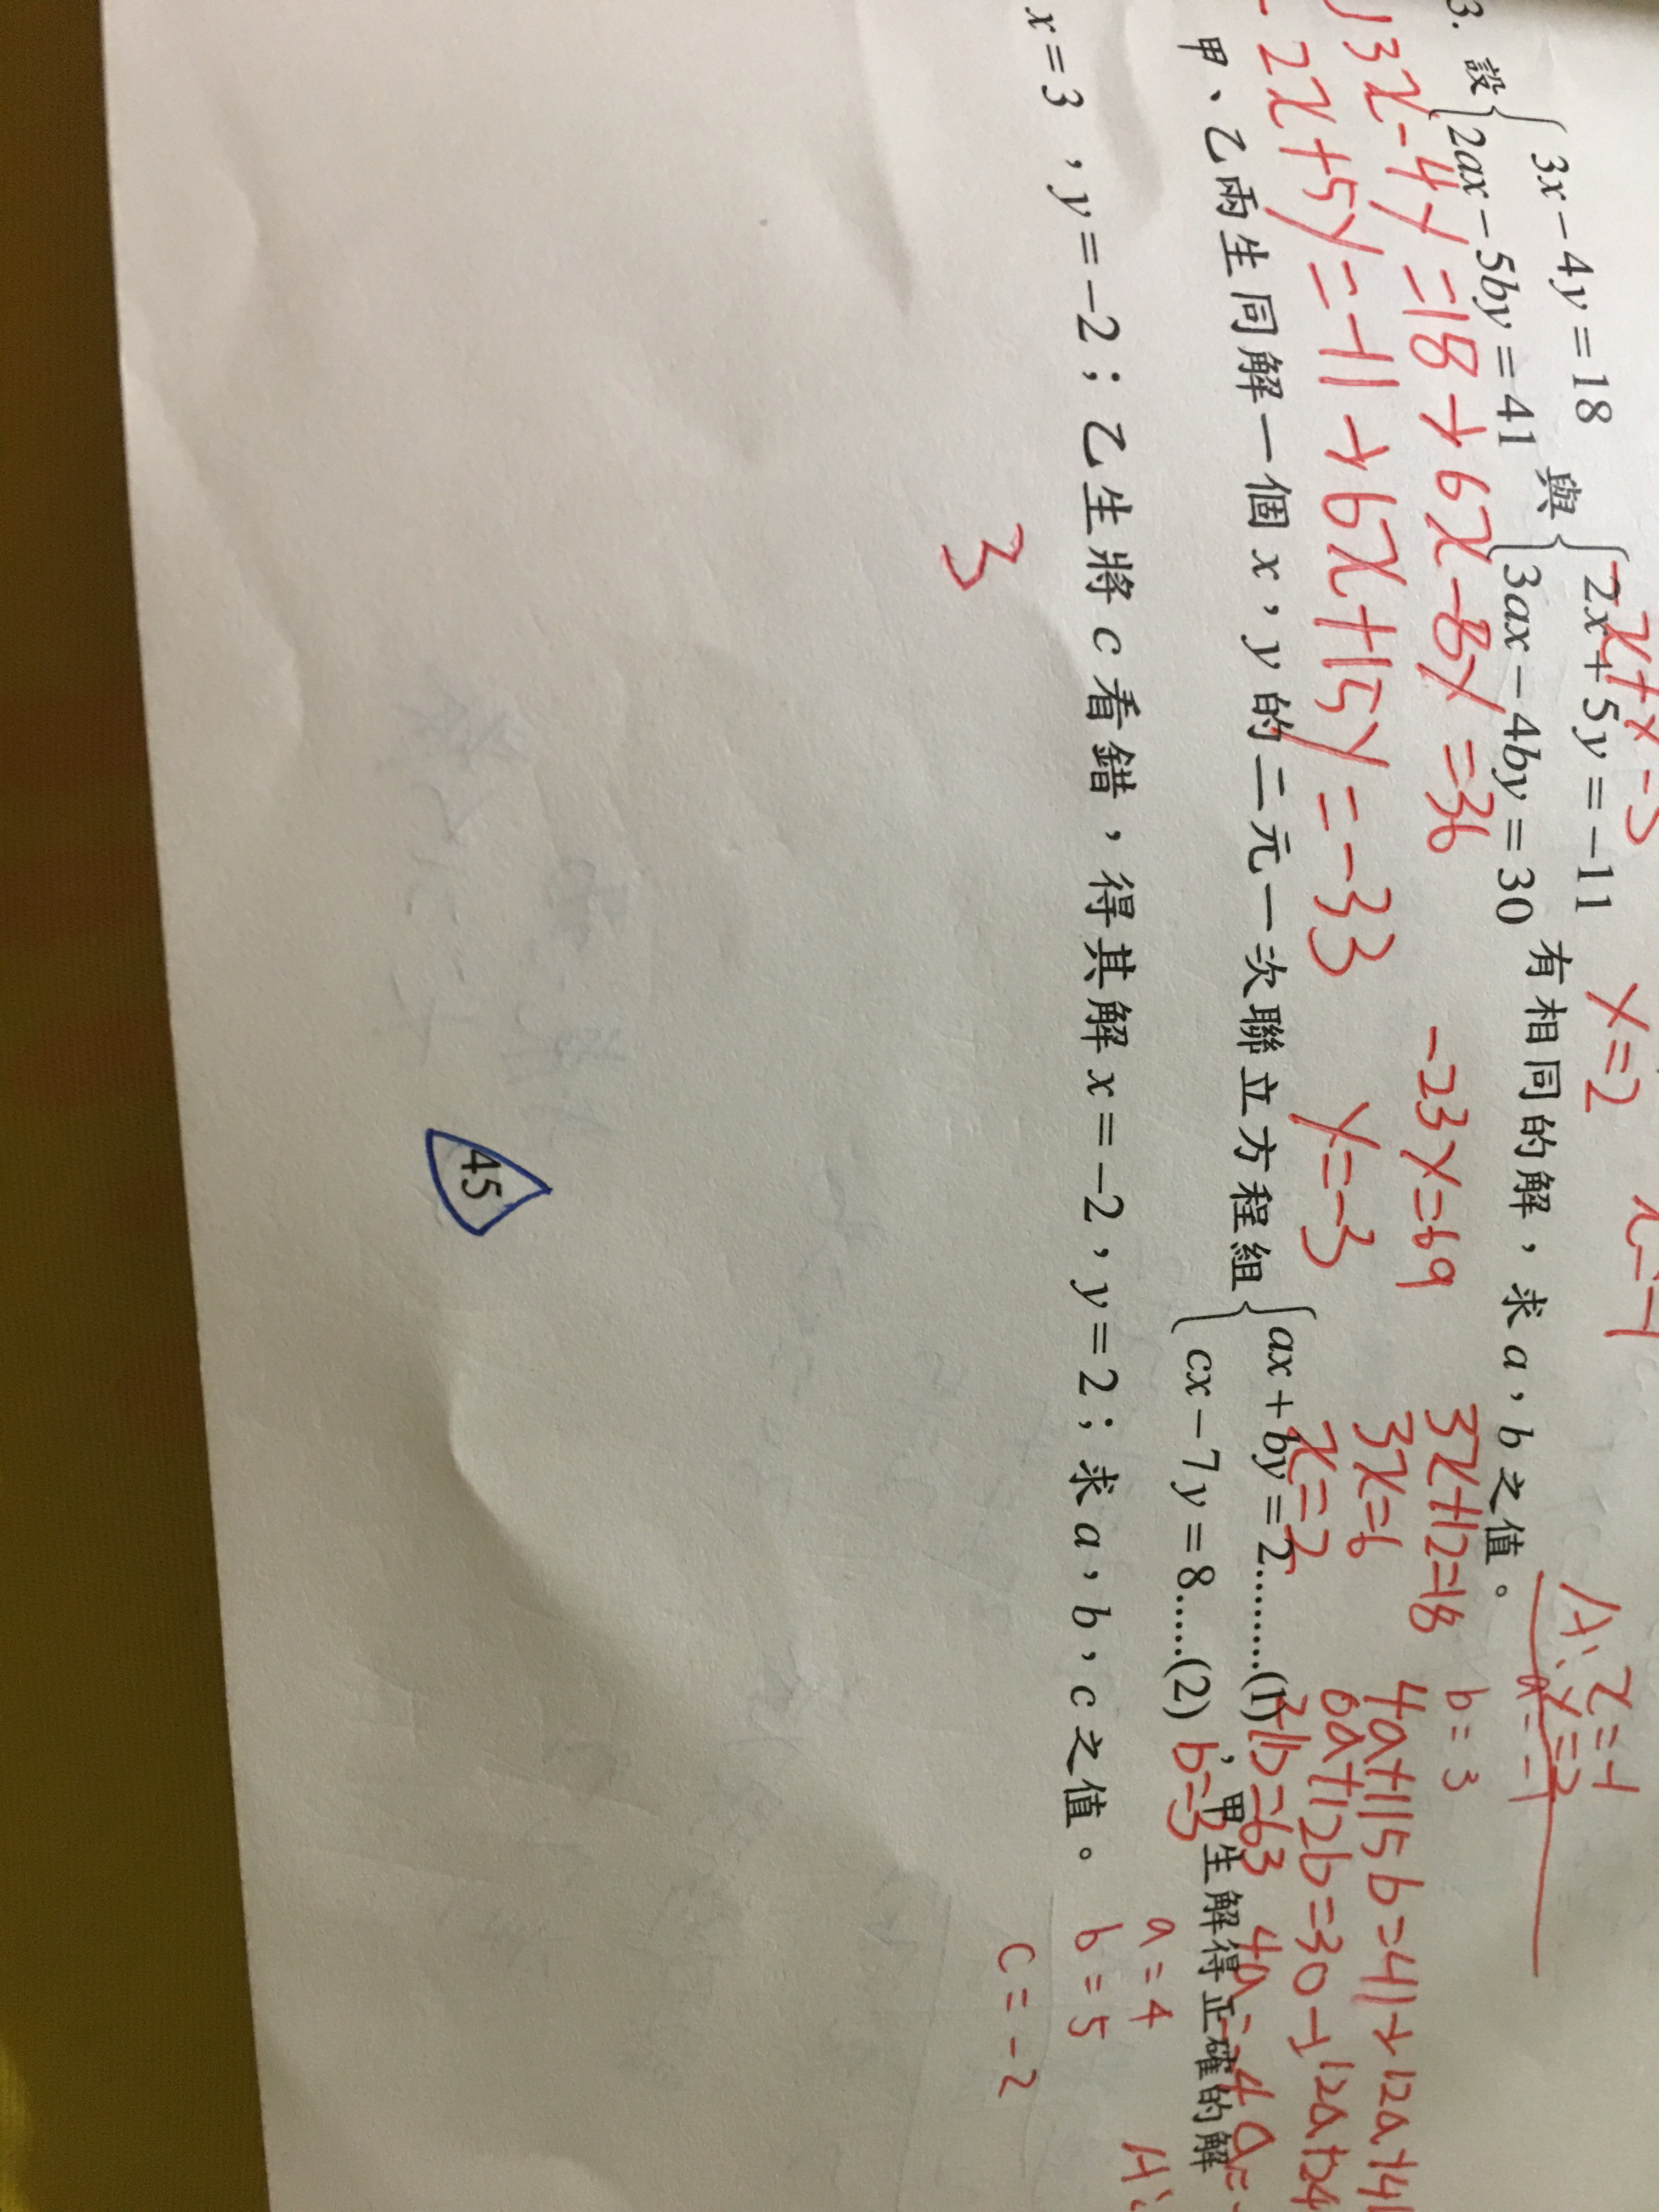 x=-1
A: x=-1
y=2
a=-1
b=3
3. 設{3x-4y=18
2ax-5by=41 與{2x+5y=-11
3ax-4by=30 有相同的解，求a，b之值。
3x-4y=18→6x-8y=36 -23y=69 3x+12=18 4a+15b=41→12a+4
2x+5y=-11→6x+15y=-33 y=-3 3x=6 6a+12b=30→12a+24
x=2 b=3
甲、乙兩生同解一個x，y的二元一次聯立方程組{ax+by=2.........(1)
cx-7y=8.....(2)，甲生解得正確的解
x=3，y=-2；乙生將c看錯，得其解x=-2，y=2；求a，b，c之值。
a=4
b=5
c=-2
3
45